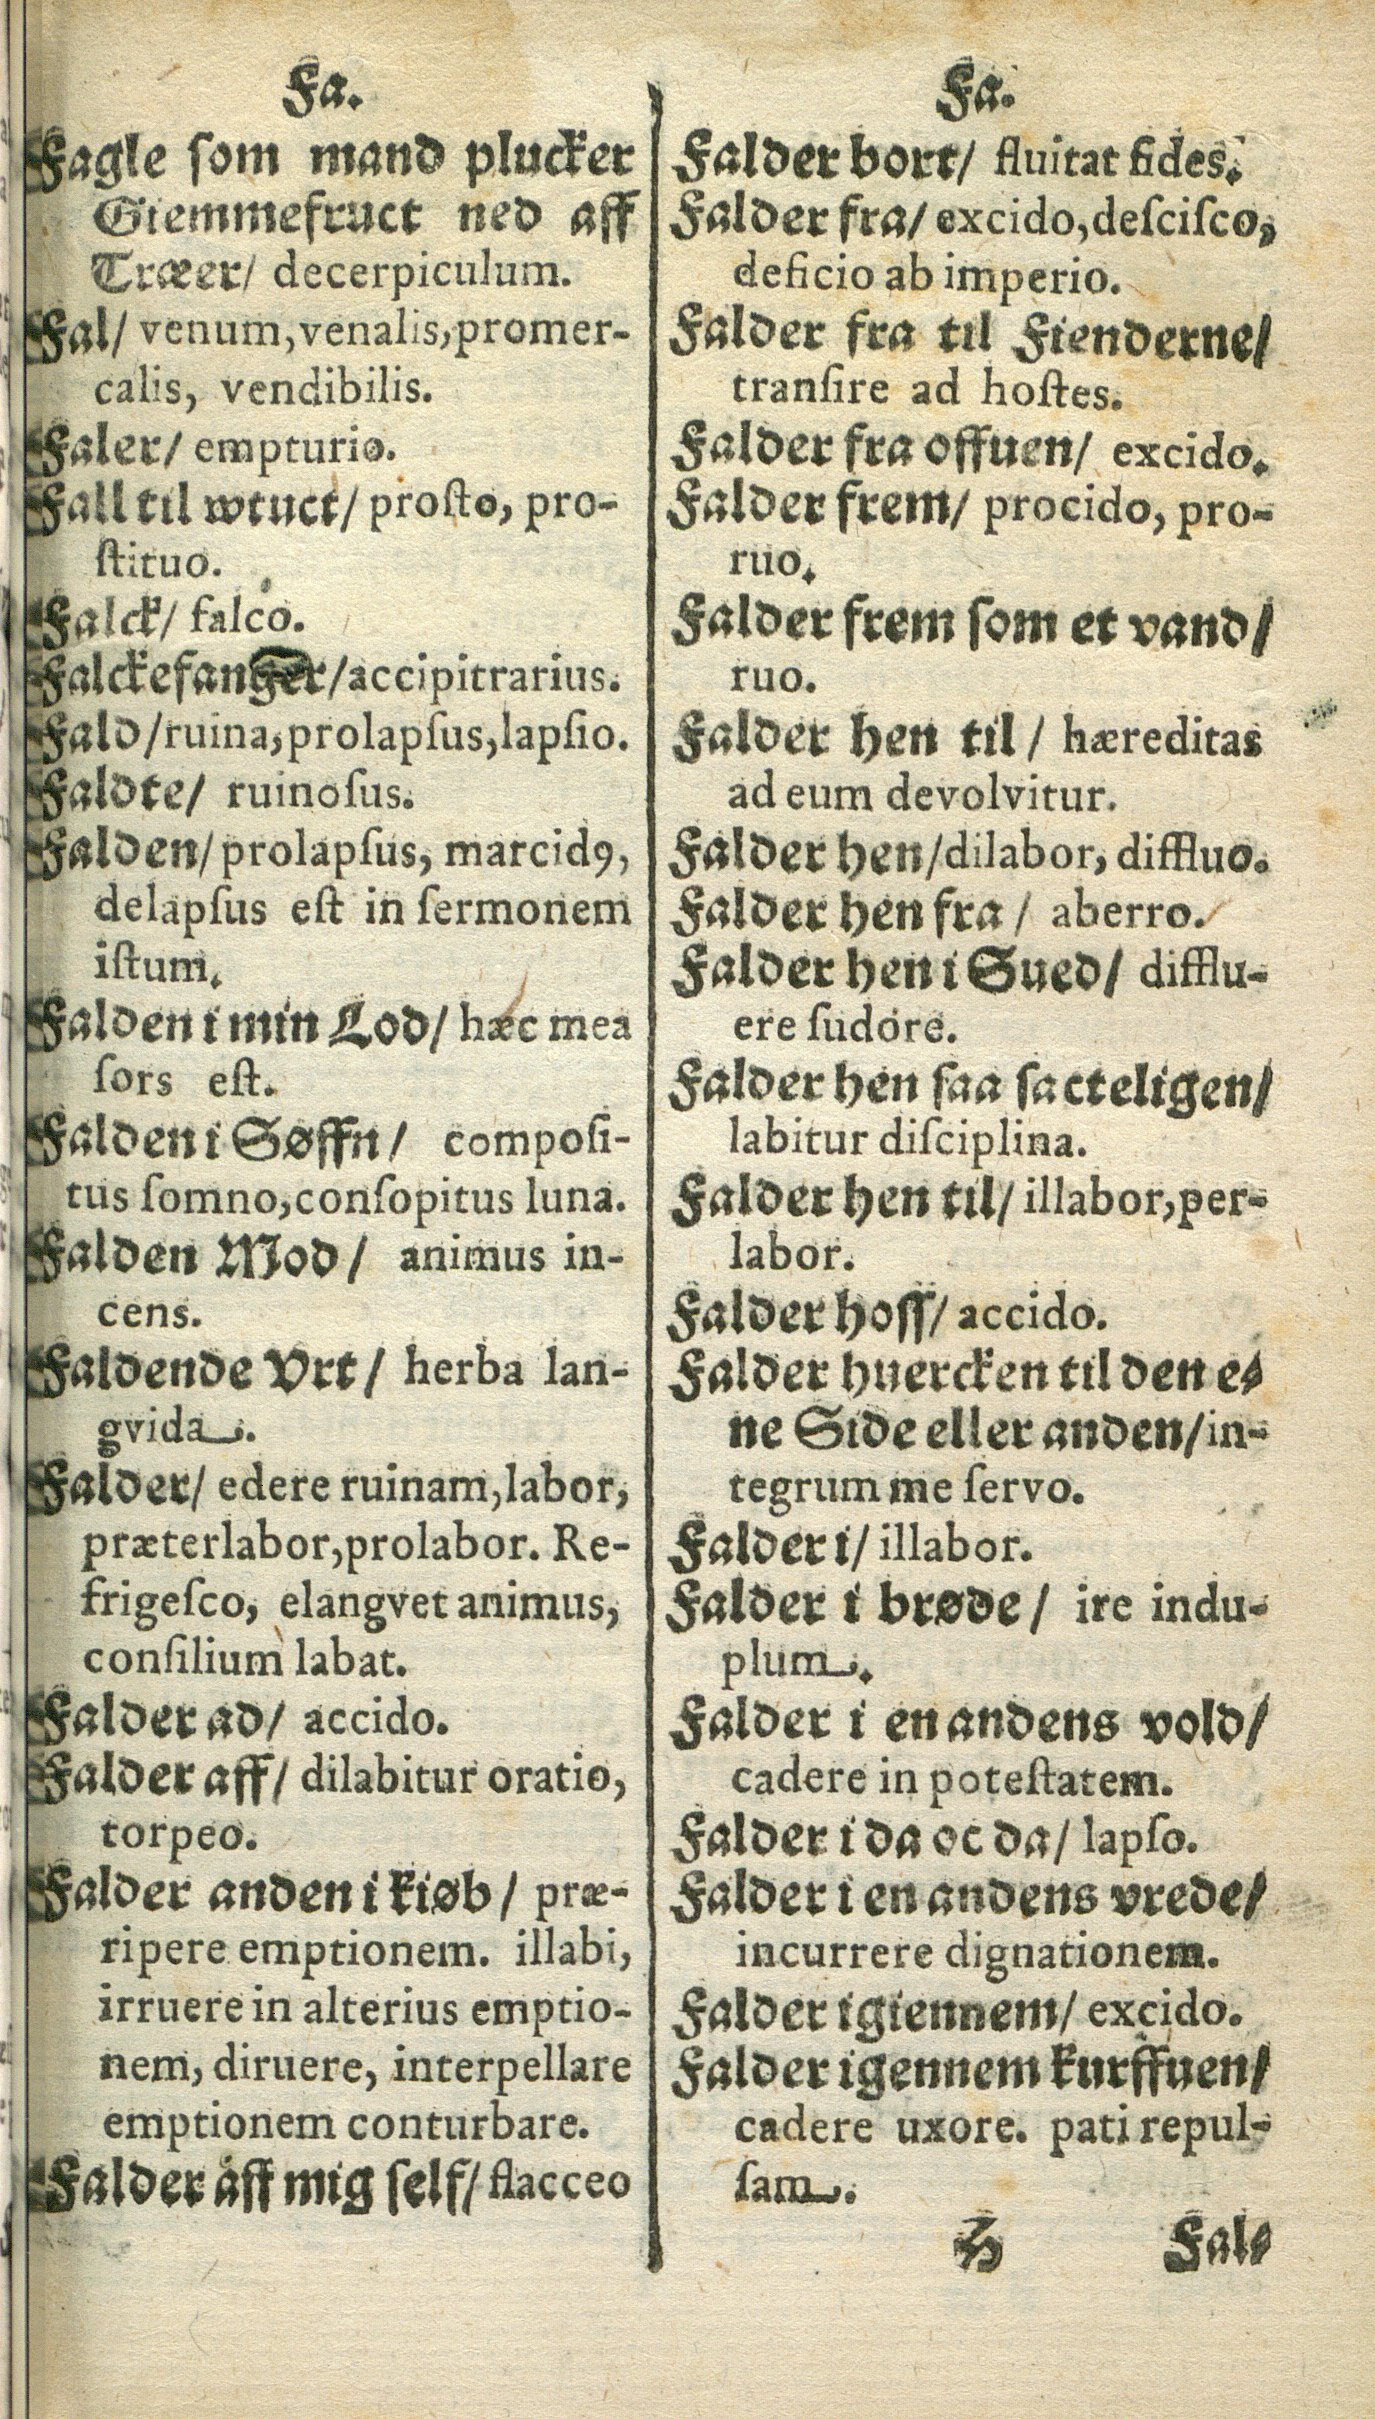 Fa.
Fagle ſom mand plucker
Giemmefruct ned aff
Træer/ decerpiculum.
Fal/ venum, venalis, promer-
calis, vendibilis.
Faler/ empturio.
Fall til wtuct/ proſto, pro-
ſtituo.
Falck/ falco.
Falckefanger/ accipitrarius.
Fald/ ruina, prolapſus, lapſio.
Faldte/ ruinoſus.
Falden/ prolapſus, marcidꝰ,
delapſus eſt in ſermonem
iſtum.
Falden i min Lod/ hæc mea
ſors eſt.
Falden i Søffn/ compoſi-
tus ſomno, conſopitus luna.
Falden Mod/ animus in-
cens.
Faldende Vrt/ herba lan-
gvida.
Falder/ edere ruinam, labor,
præterlabor, prolabor. Re-
frigeſco, elangvet animus,
conſilium labat.
Falder ad/ accido.
Falder aff/ dilabitur oratio,
torpeo.
Falder anden i kiøb/ præ-
ripere emptionem. illabi,
irruere in alterius emptio-
nem, diruere, interpellare
emptionem conturbare.
Falder aff mig ſelf/ flacceo
Fa.
Falder bort/ fluitat fides.
Falder fra/ excido, deſciſco,
deficio ab imperio.
Falder fra til Fienderne/
tranſire ad hoſtes.
Falder fra offuen/ excido.
Falder frem/ procido, pro-
ruo.
Falder frem ſom et vand/
ruo.
Falder hen til/ hæreditas
ad eum devolvitur.
Falder hen/ dilabor, diffluo.
Falder hen fra/ aberro.
Falder hen i Sued/ difflu-
ere ſudore.
Falder hen ſaa ſacteligen/
labitur diſciplina.
Falder hen til/ illabor, per-
labor.
Falder hoſſ/ accido.
Falder huercken til den e-
ne Side eller anden/ in-
tegrum me ſervo.
Falder i/ illabor.
Falder i brøde/ ire indu-
plum.
Falder i en andens vold/
cadere in poteſtatem.
Falder i da oc da/ lapſo.
Falder i en andens vrede/
incurrere dignationem.
Falder igiennem/ excido.
Falder igennem kurffuen/
cadere uxore. pati repul-
ſam.
H Fal-